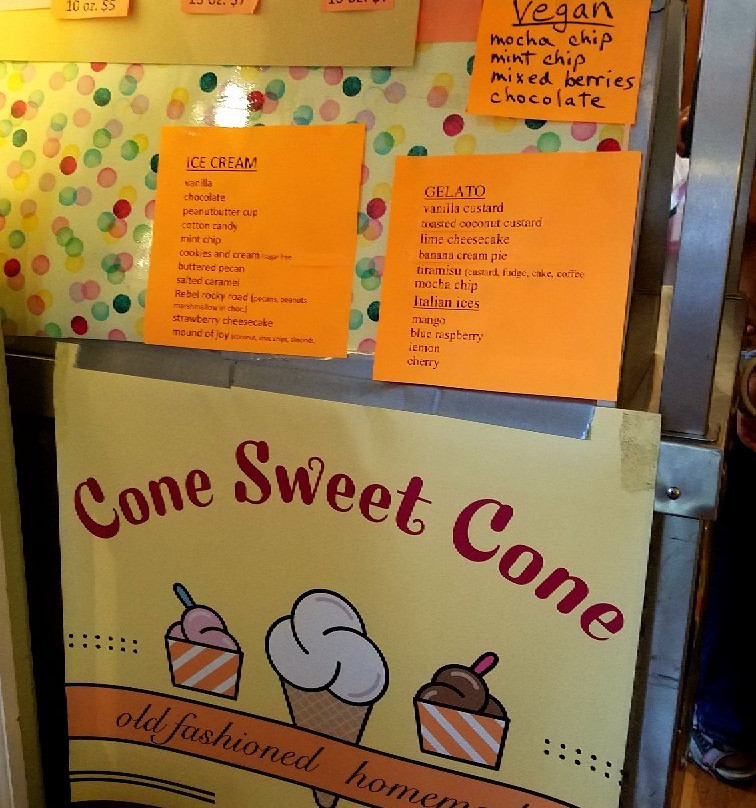 10 oz. $5
Vegan
mocha chip
mint chip
mixed berries
chocolate
ICE CREAM
vanilla
chocolate
peanutbutter cup
cotton candy
mint chip
cookies and cream
buttered pecan
salted caramel
Rebel rocky road (pecans, peanuts
marshmallow in choc.)
strawberry cheesecake
mound of joy
GELATO
vanilla custard
toasted coconut custard
lime cheesecake
banana cream pie
tiramisu (custard, fudge, cake, coffee
mocha chip
Italian ices
mango
blue raspberry
lemon
cherry
Cone Sweet Cone
old fashioned homema